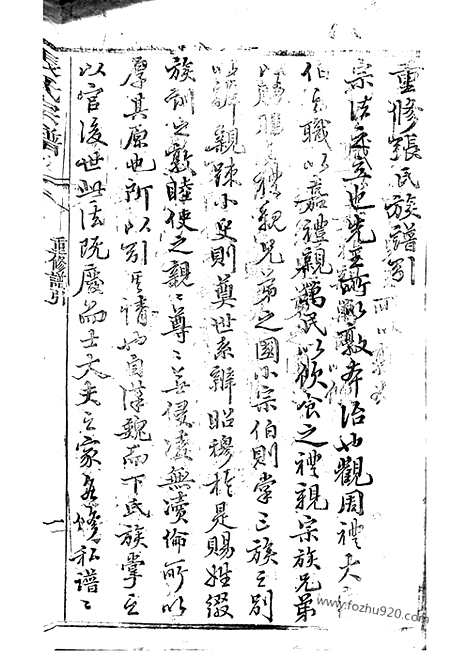 重修張氏族譜引
宗法之立也先王所以敦本治也觀周禮大
伯之職以嘉禮親萬民以飲食之禮親宗族兄弟
以脤膰之禮親兄弟之國小宗伯則掌三族之別
以辨親疎小史則奠世系辨昭穆於是賜姓綴
族訓之敦睦使之親〻尊〻無侵凌無瀆倫所以
厚其原也所以引其情也自漢魏而下氏族掌之
以官後世此法既廢而士大夫之家各修私譜〻
張氏宗譜
重修譜引
一
www.fozhu920.com